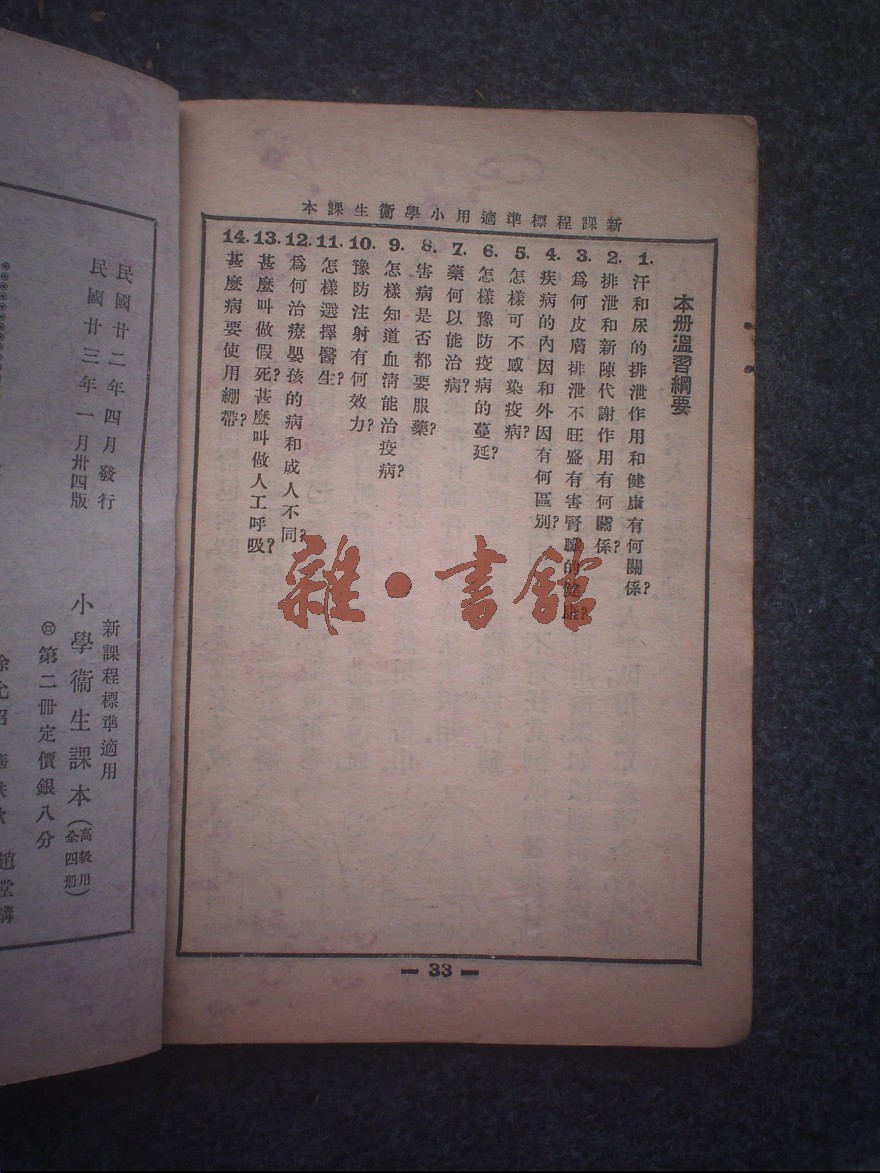 新課程標準適用小學衞生課本
本册溫習綱要
1. 汗和尿的排泄作用和健康有何關係?
2. 排泄和新陳代謝作用有何關係?
3. 爲何皮膚排泄不旺盛有害腎臟的健康?
4. 疾病的內因和外因有何區別?
5. 怎樣可不感染疫病?
6. 怎樣豫防疫病的蔓延?
7. 藥何以能治病?
8. 害病是否都要服藥?
9. 怎樣知道血淸能治疫病?
10. 豫防注射有何效力?
11. 怎樣選擇醫生?
12. 爲何治療嬰孩的病和成人不同?
13. 甚麼叫做假死?甚麼叫做人工呼吸?
14. 甚麼病要使用綳帶?
— 33 —
雜·書館
民國廿二年四月發行
民國廿三年一月卅四版
新課程標準適用
小學衞生課本(高級用全四册)
第二冊定價銀八分